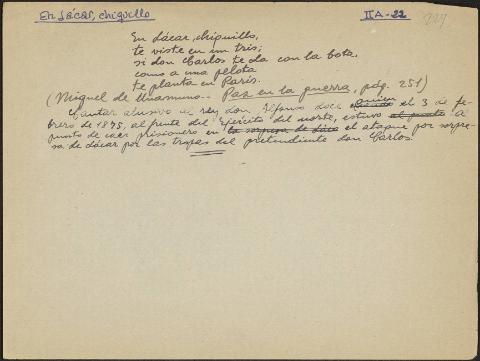 En Lácar, chiquillo
IIA-22
229
En Lácar, chiquillo,
te viste en un tris;
si don Carlos te da con la bota,
como a una pelota
te planta en París.
(Miguel de Unamuno.- Paz en la guerra, pág. 251)
Cantar alusivo al rey don Alfonso doce quien el 3 de fe-
brero de 1875, al frente del Ejército del norte, estuvo al punto a
punto de caer prisionero en la sorpresa de Láca el ataque por sorpre-
sa de Lácar por las tropas del pretendiente don Carlos.